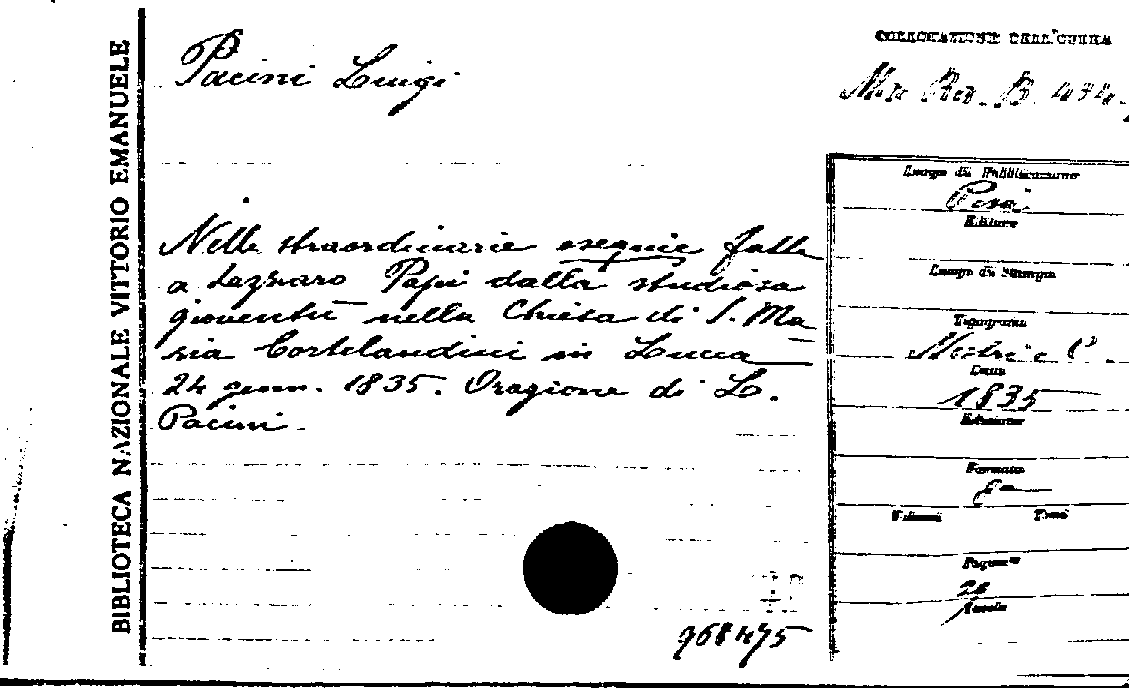 BIBLIOTECA NAZIONALE VITTORIO EMANUELE
Pacini Luigi
COLLOCAZIONE DELL'OPERA
B. 434
Nelle straordinarie esequie fatte
a Lazzaro Papi dalla studiosa
gioventù nella Chiesa di S. Ma
ria Cortelandini in Lucca
24 genn. 1835. Orazione di L.
Pacini.
968475
Luogo di Pubblicazione
Pisa
Editore
Luogo di Stampa
Tipografia
Nistri e C.
Data
1835
Edizione
Formato
8°
Volumi Tomi
Pagine
24
Tavole